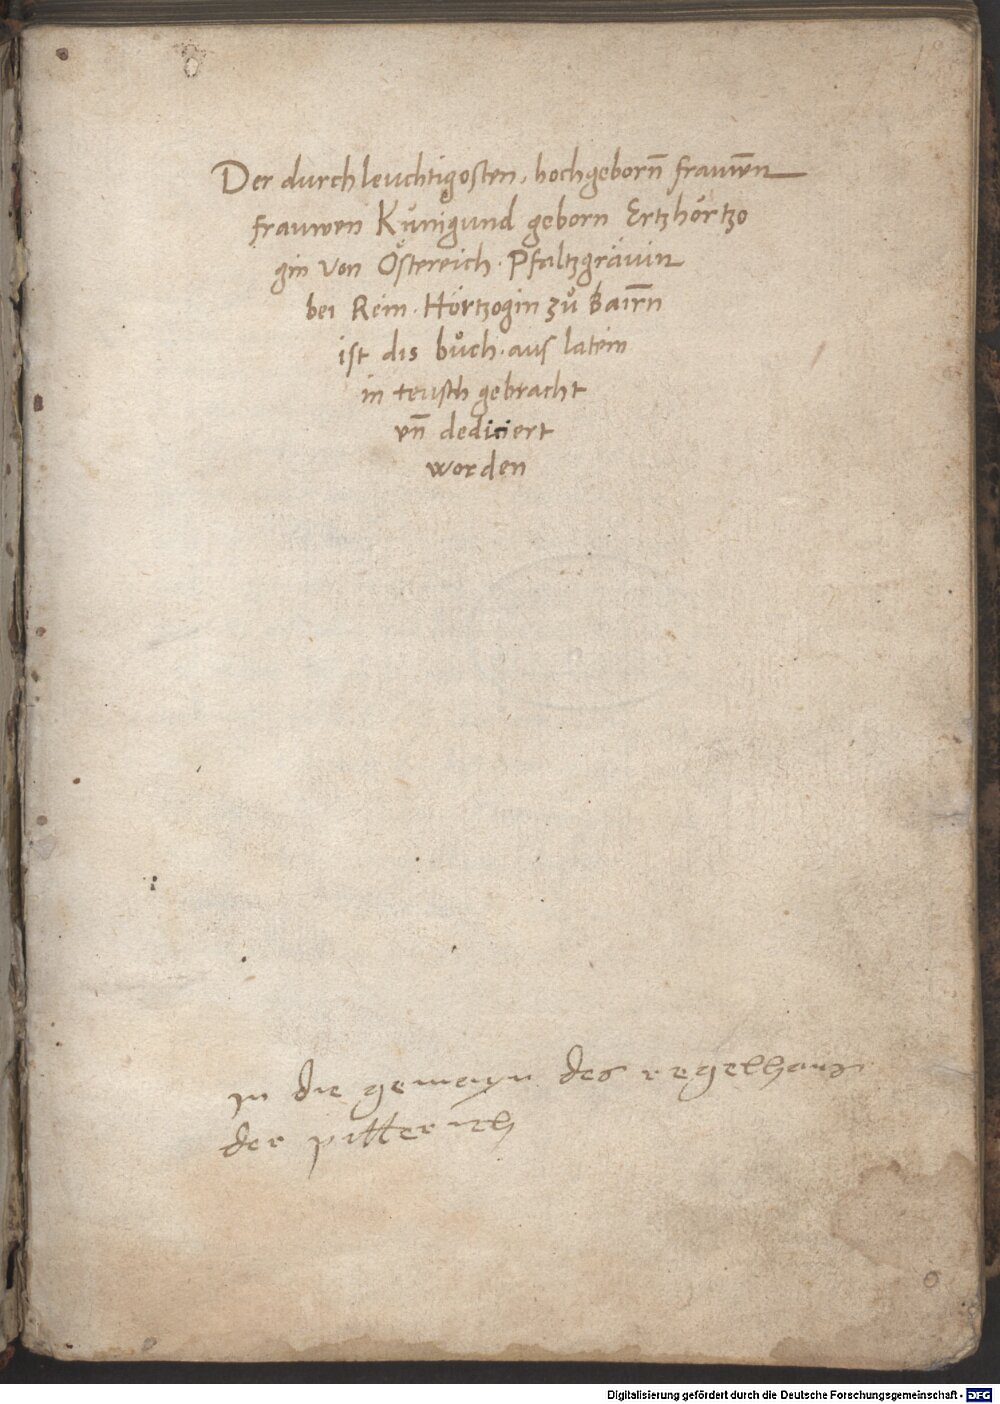 Der durchleuchtigosten, hochgeborn̄ frauwen̄
frauwen Künigund geborn Ertzhörtzo
gin von Östereich · Pfaltzgrävin
bei Rein · Hörtzogin zů Bairn̄
ist dis bůch · aus latein
in teusch gebracht
vn̄ dediciert
worden
in die gemayn des regelhaus
der pitterich
Digitalisierung gefördert durch die Deutsche Forschungsgemeinschaft - DFG